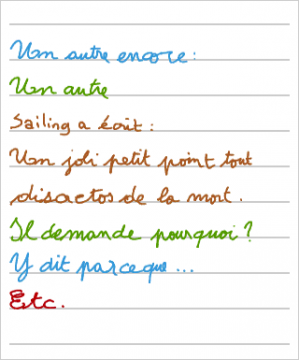 Un autre encore :
Un autre
Sailing a écrit :
Un joli petit point tout
disactos de la mort.
Il demande pourquoi ?
Y dit parceque ...
Etc.